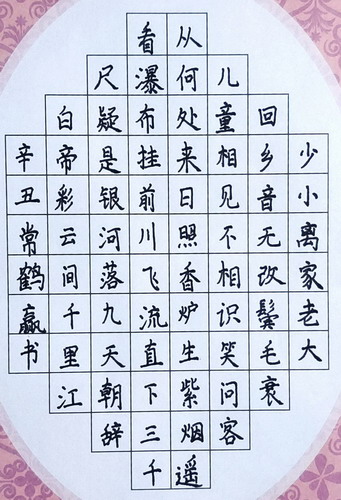 看从
尺瀑何儿
白疑布处童回
辛帝是挂来相乡少
丑彩银前日见音小
常云河川照不无离
鹤间落飞香相改家
赢千九流炉识鬓老
书里天直生笑毛大
江朝下紫问衰
辞三烟客
千遥